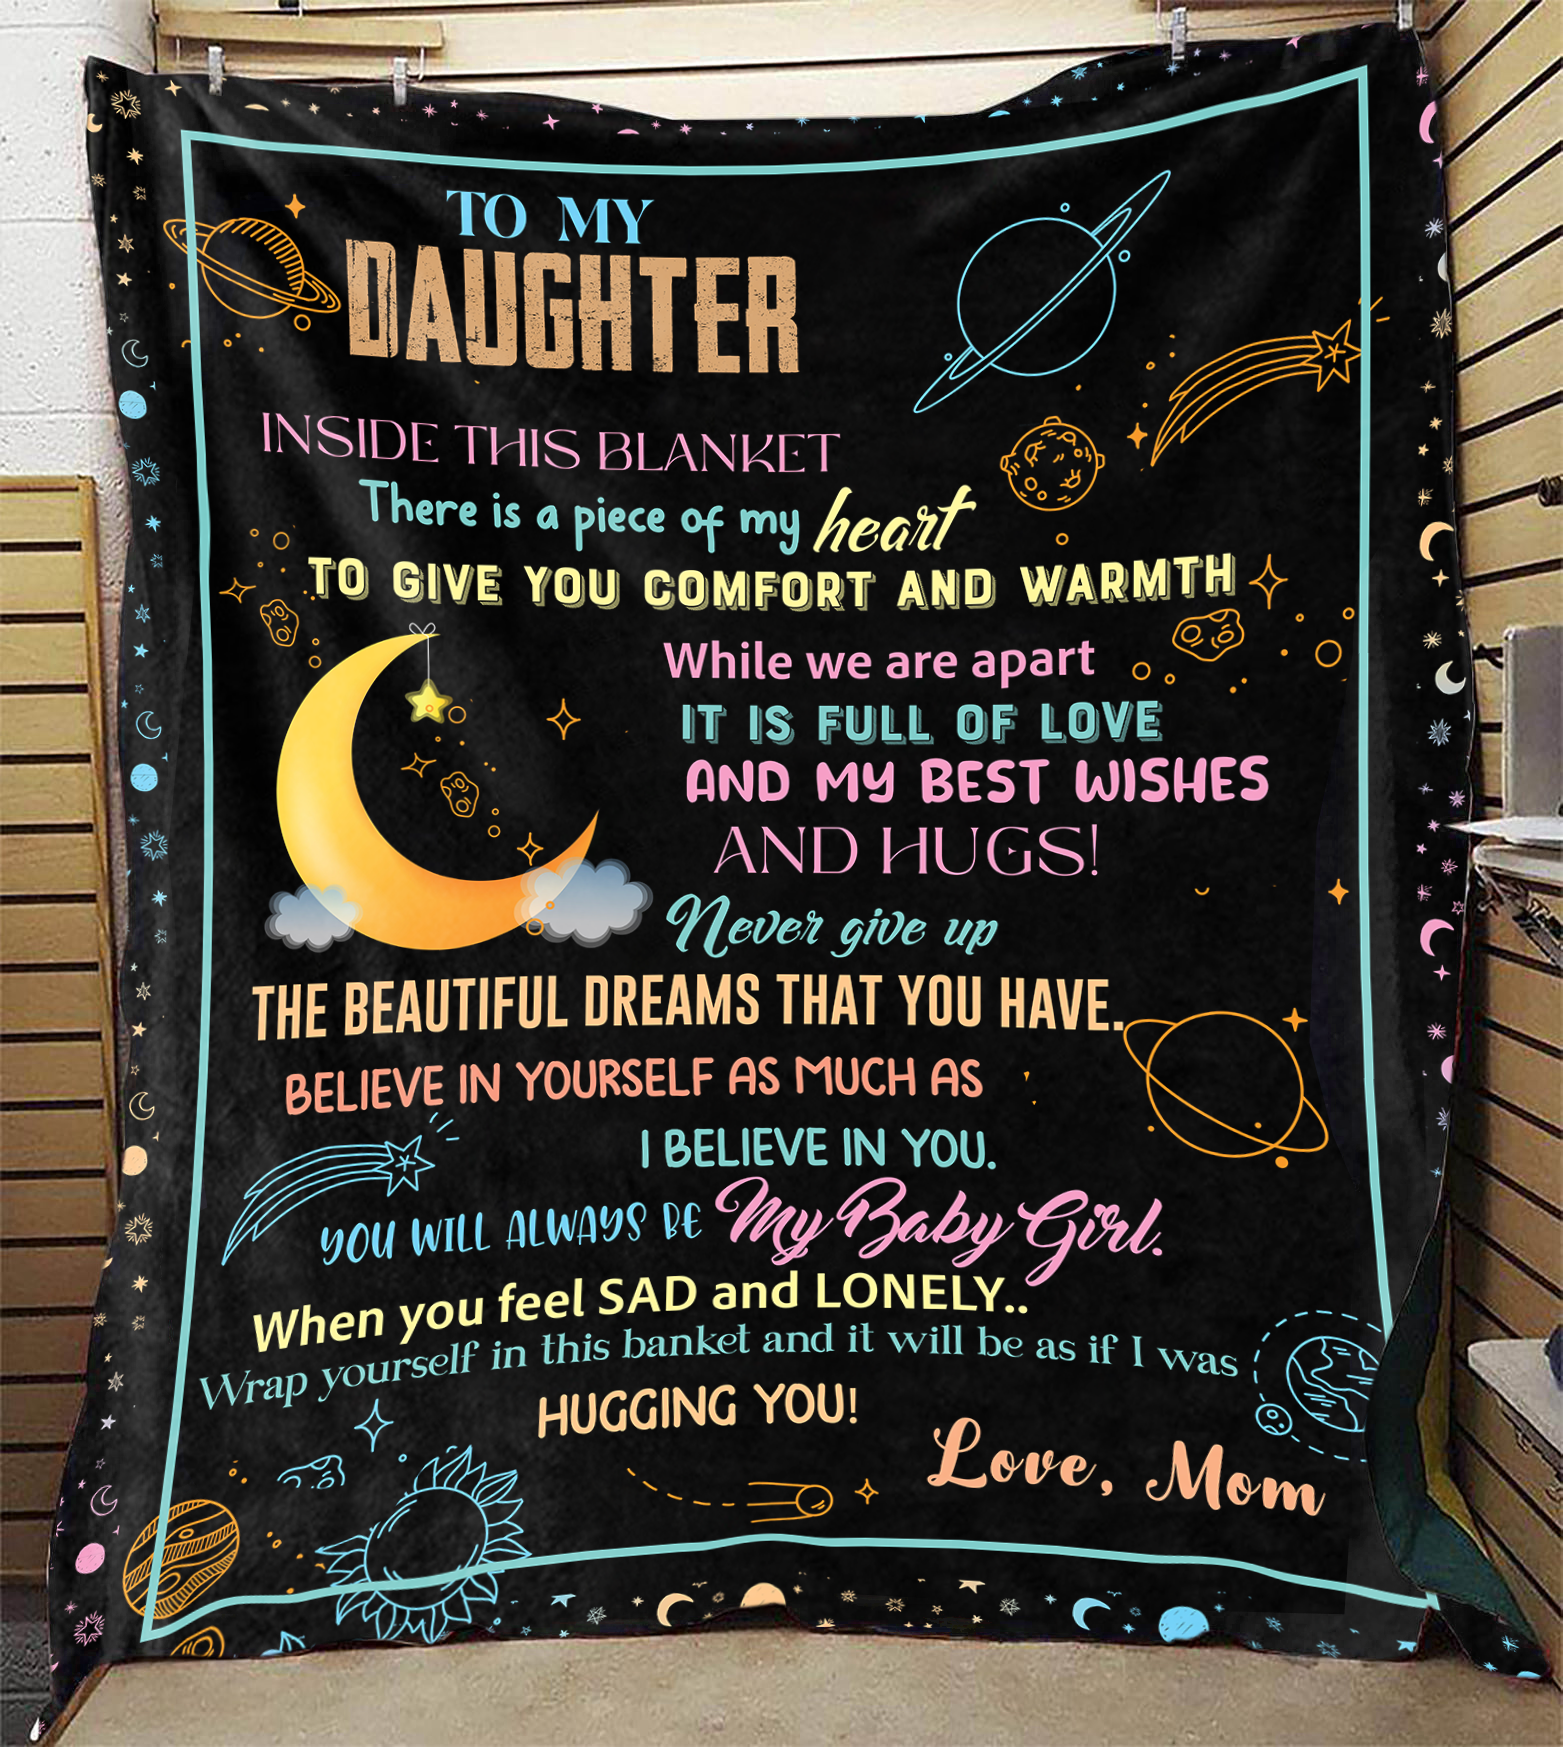 TO MY
DAUGHTER
INSIDE THIS BLANKET
There is a piece of my heart
TO GIVE YOU COMFORT AND WARMTH
While we are apart
IT IS FULL OF LOVE
AND MY BEST WISHES
AND HUGS!
Never give up
THE BEAUTIFUL DREAMS THAT YOU HAVE.
BELIEVE IN YOURSELF AS MUCH AS
I BELIEVE IN YOU.
YOU WILL ALWAYS BE My Baby Girl.
When you feel SAD and LONELY..
Wrap yourself in this banket and it will be as if I was
HUGGING YOU!
Love, Mom